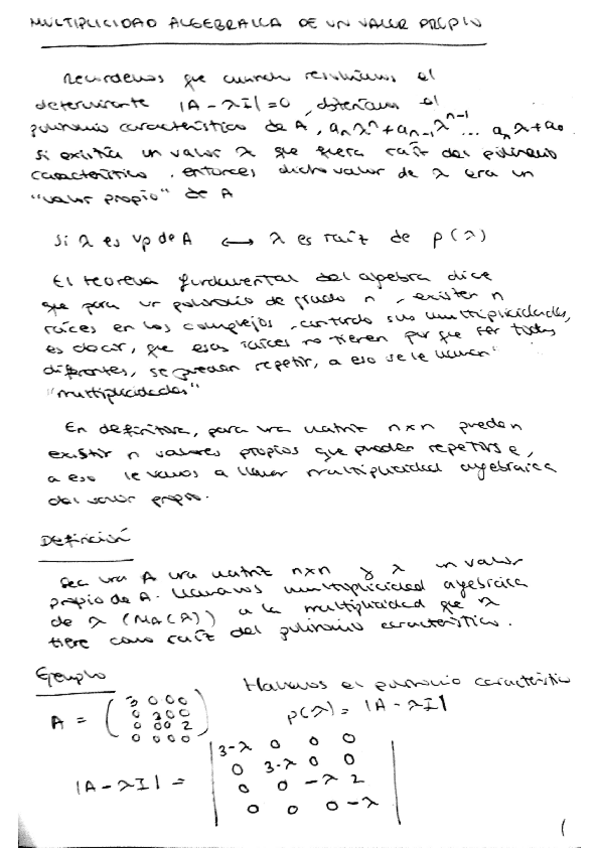 MULTIPLICIDAD ALGEBRAICA DE UN VALOR PROPIO
Recordemos que cuando resolvíamos el
determinante |A - λI| = 0, obteníamos el
polinomio característico de A, aₙλⁿ + aₙ₋₁λⁿ⁻¹ ... a₁λ + a₀.
Si existía un valor λ que fuera raíz del polinomio
característico, entonces dicho valor de λ era un
"valor propio" de A
Si λ es vp de A ⟷ λ es raíz de p(λ)
El teorema fundamental del algebra dice
que para un polinomio de grado n, existen n
raíces en los complejos, contando sus multiplicidades,
es decir, que esas raíces no tienen por que ser todas
diferentes, se puedan repetir, a eso se le llaman
"multiplicidades"
En definitiva, para una matriz n×n pueden
existir n valores propios que pueden repetirse,
a eso le vamos a llamar multiplicidad algebraica
del valor propio.
Definición
Sea una A una matriz n×n y λ un valor
propio de A. Llamamos multiplicidad algebraica
de λ (MA(λ)) a la multiplicidad que λ
tiene como raíz del polinomio característico.
Ejemplo
Hallamos el polinomio característico
A = ( 3 0 0 0
0 3 0 0
0 0 0 2
0 0 0 0 )
p(λ) = |A - λI|
|A - λI| = | 3-λ 0 0 0
0 3-λ 0 0
0 0 -λ 2
0 0 0 -λ |